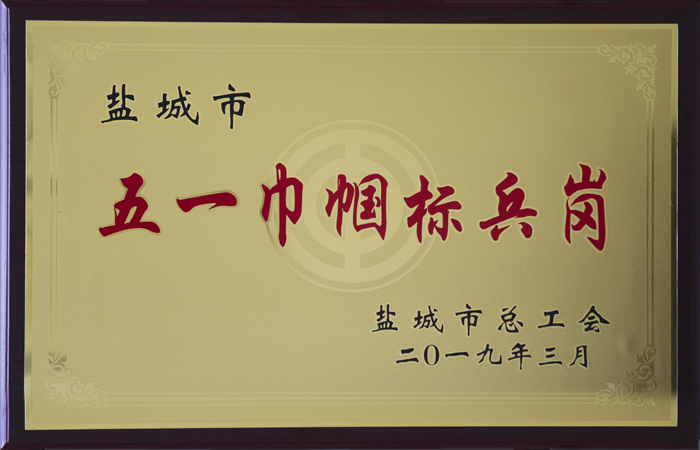 盐城市
五一巾帼标兵岗
盐城市总工会
二〇一九年三月